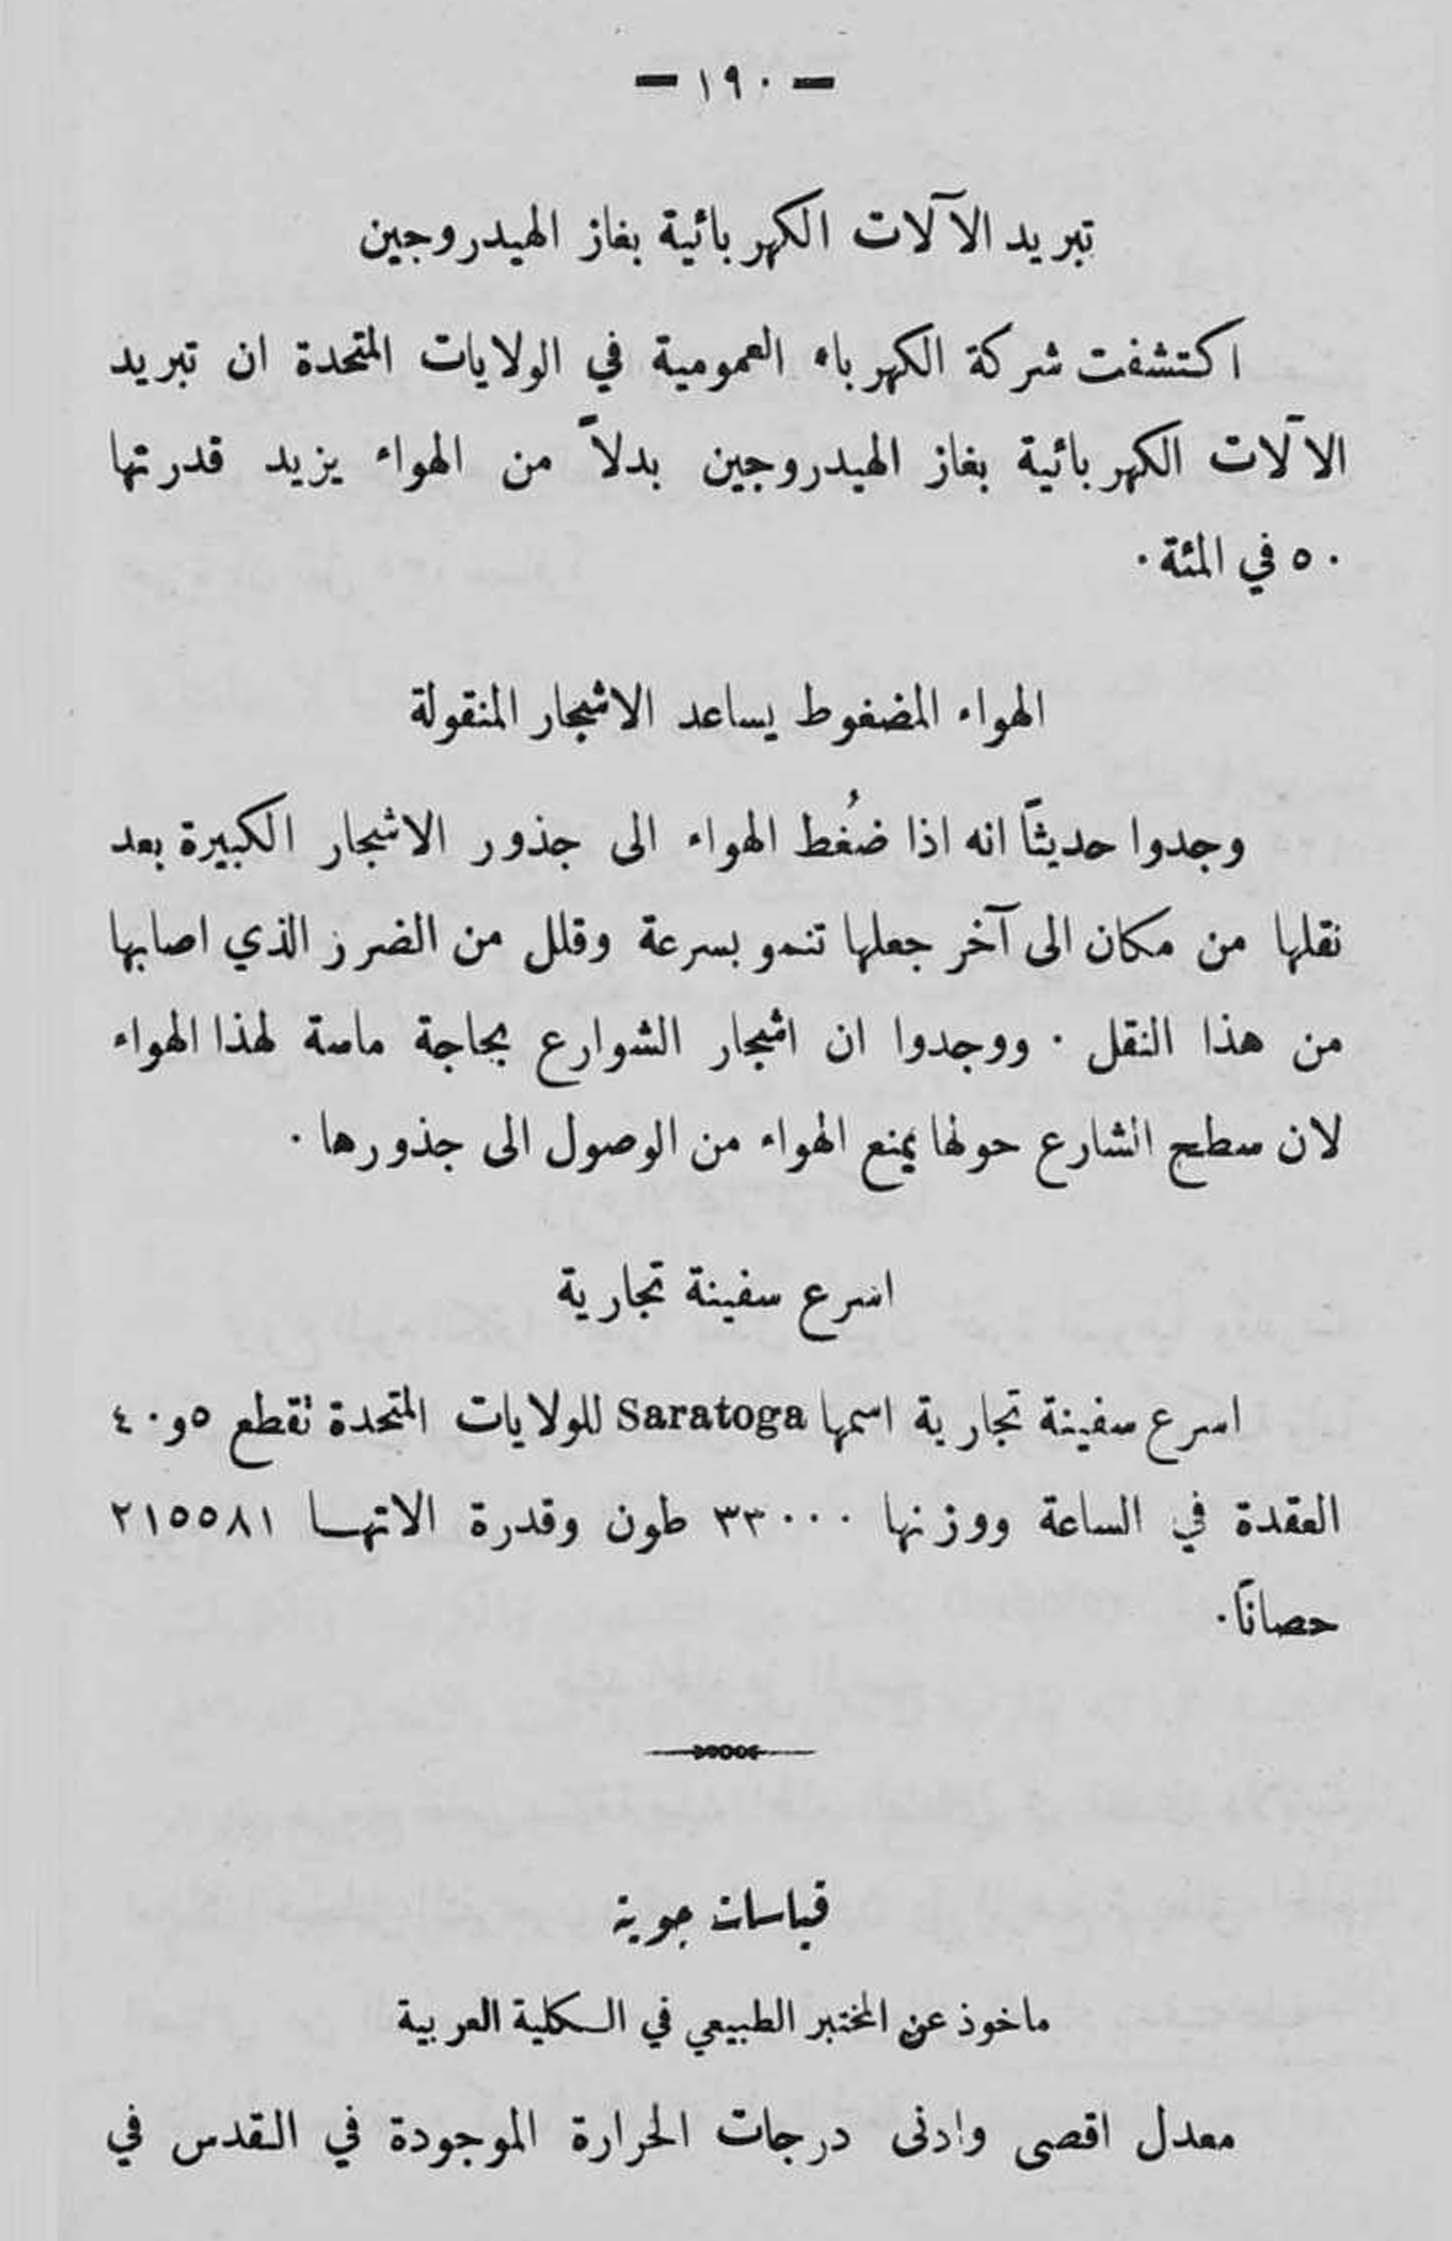 — ١٩٠ —
تبريد الآلات الكهربائية بغاز الهيدروجين
اكتشفت شركة الكهرباء العمومية في الولايات المتحدة ان تبريد
الآلات الكهربائية بغاز الهيدروجين بدلاً من الهواء يزيد قدرتها
٥٠ في المئة ٠
الهواء المضغوط يساعد الاشجار المنقولة
وجدوا حديثاً انه اذا ضُغط الهواء الى جذور الاشجار الكبيرة بعد
نقلها من مكان الى آخر جعلها تنمو بسرعة وقلل من الضرر الذي اصابها
من هذا النقل ٠ ووجدوا ان اشجار الشوارع بحاجة ماسة لهذا الهواء
لان سطح الشارع حولها يمنع الهواء من الوصول الى جذورها ٠
اسرع سفينة تجارية
اسرع سفينة تجارية اسمها Saratoga للولايات المتحدة تقطع ٥و٤٠
العقدة في الساعة ووزنها ٣٣٠٠٠ طون وقدرة الاتهـا ٢١٥٥٨١
حصاناً٠
قياسات جوية
ماخوذ عن المختبر الطبيعي في الكلية العربية
معدل اقصى وادنى درجات الحرارة الموجودة في القدس في